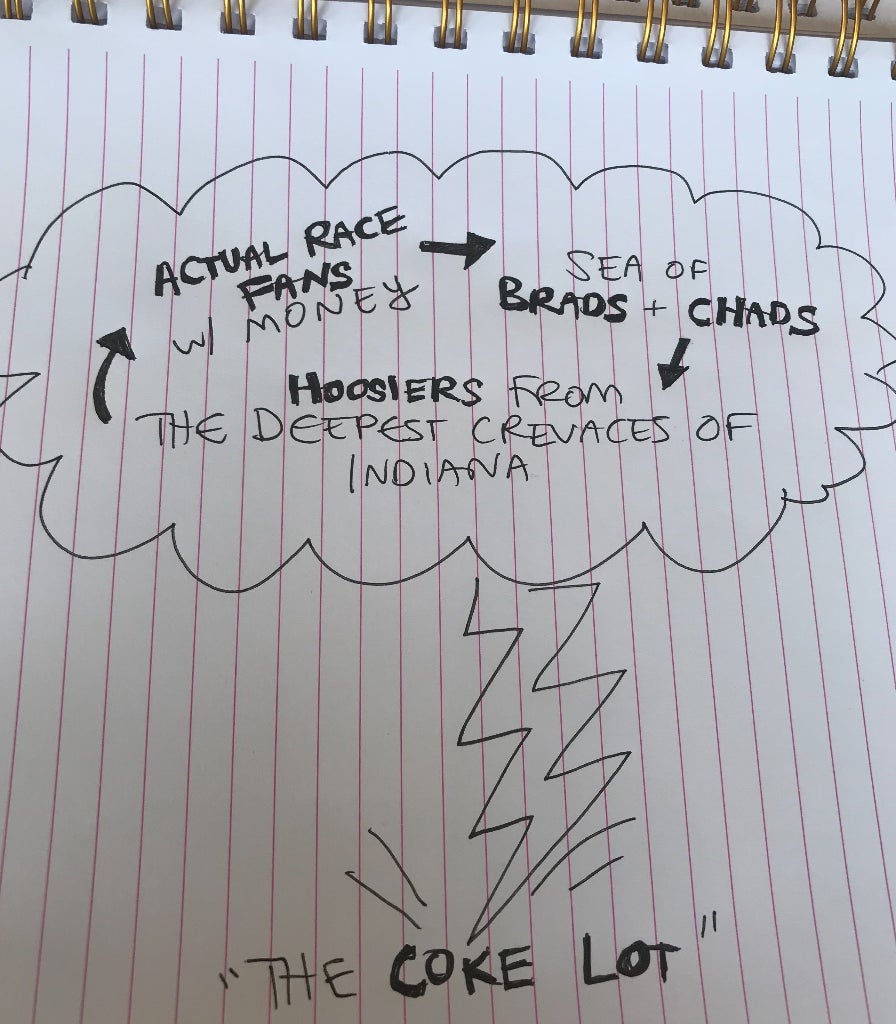 ACTUAL RACE
FANS
w/ MONEY
SEA OF
BRADS + CHADS
HOOSIERS FROM
THE DEEPEST CREVACES OF
INDIANA
"THE COKE LOT"